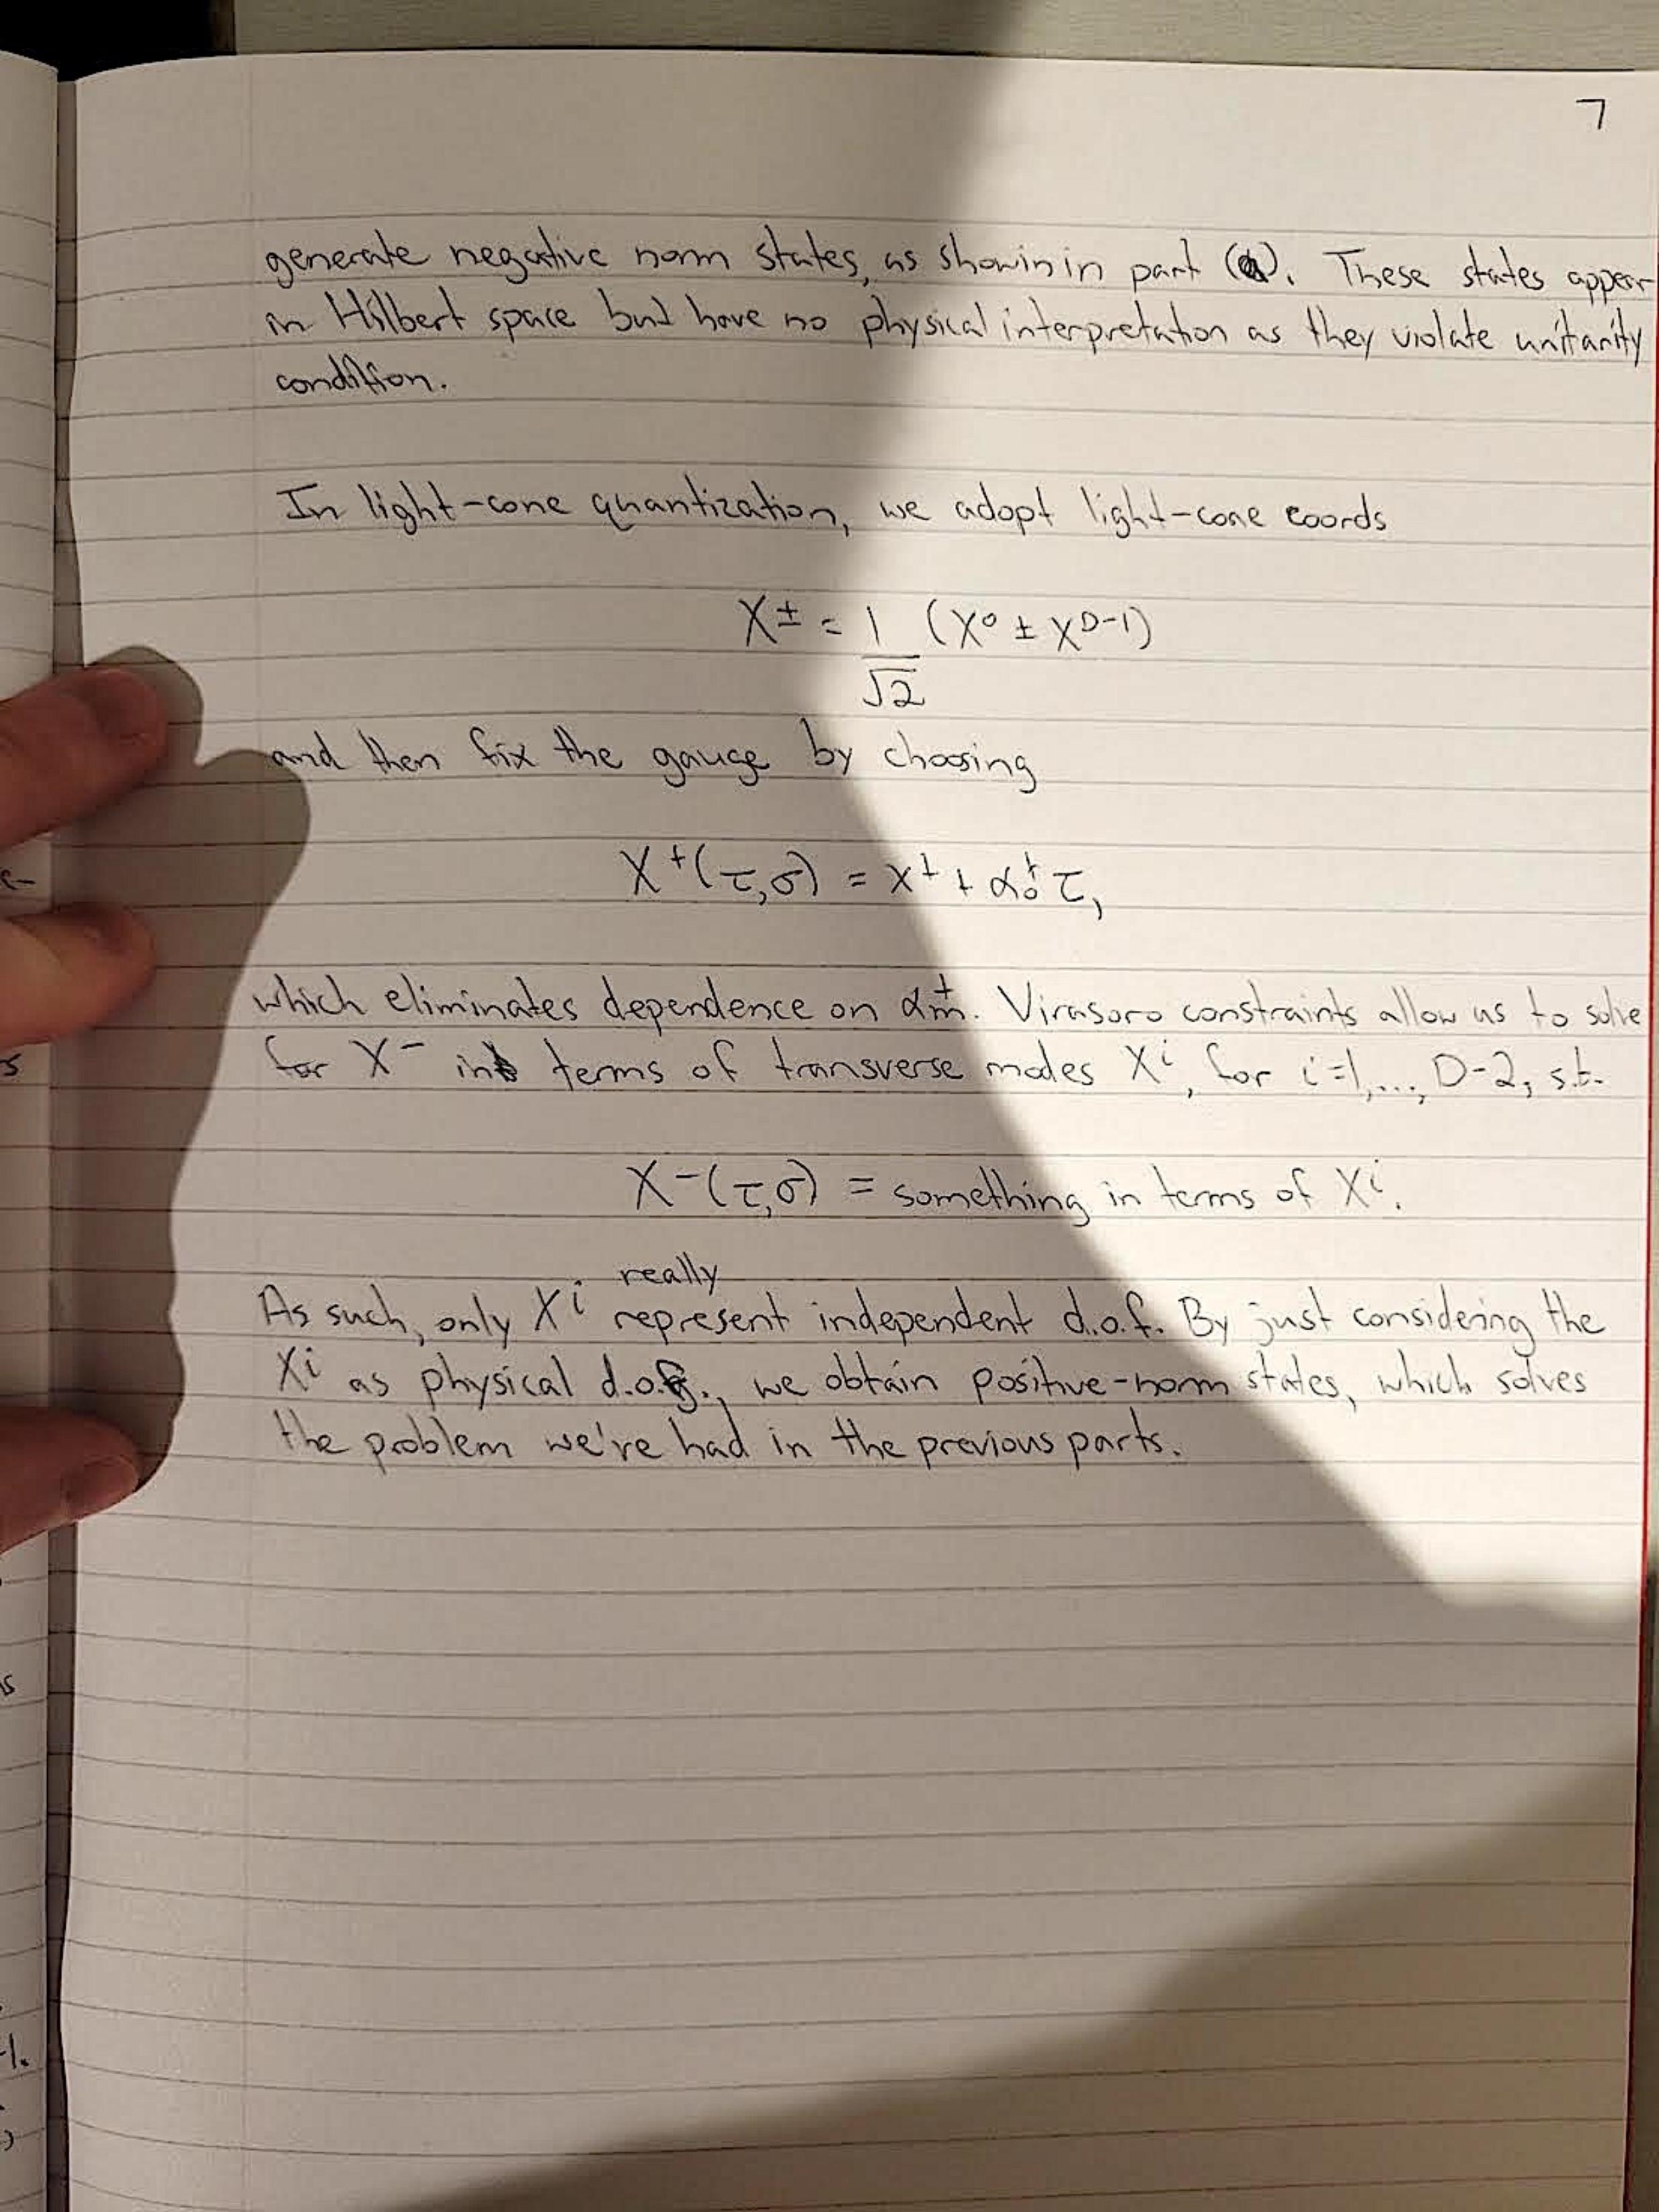 7
generate negative norm states, as showin in part (a). These states appear
in Hilbert space but have no physical interpretation as they violate unitarity
condition.
In light-cone quantization, we adopt light-cone coords
X± = 1/√2 (X⁰ ± X^D-1)
and then fix the gauge by choosing
X⁺(τ,σ) = x⁺ + α₀⁺ τ,
which eliminates dependence on αm⁺. Virasoro constraints allow us to solve
for X⁻ in terms of transverse modes Xⁱ, for i=1,..., D-2, s.t.
X⁻(τ,σ) = something in terms of Xⁱ.
really
As such, only Xⁱ represent independent d.o.f. By just considering the
Xⁱ as physical d.o.f., we obtain positive-norm states, which solves
the problem we're had in the previous parts.